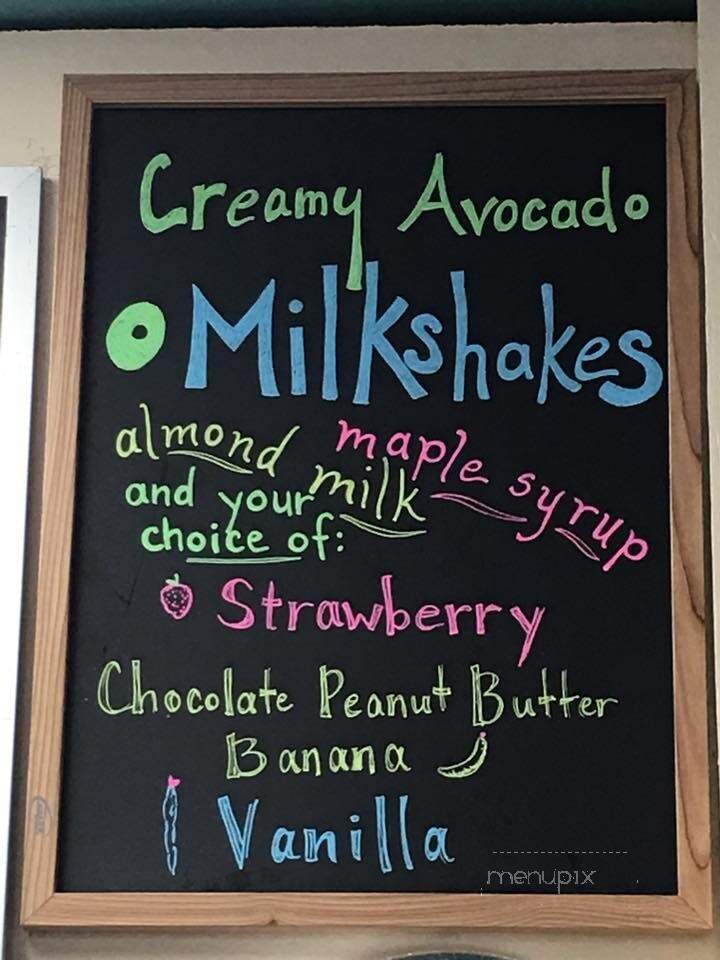 Creamy Avocado
Milkshakes
almond milk
maple syrup
and your
choice of:
Strawberry
Chocolate Peanut Butter
Banana
Vanilla
menupix